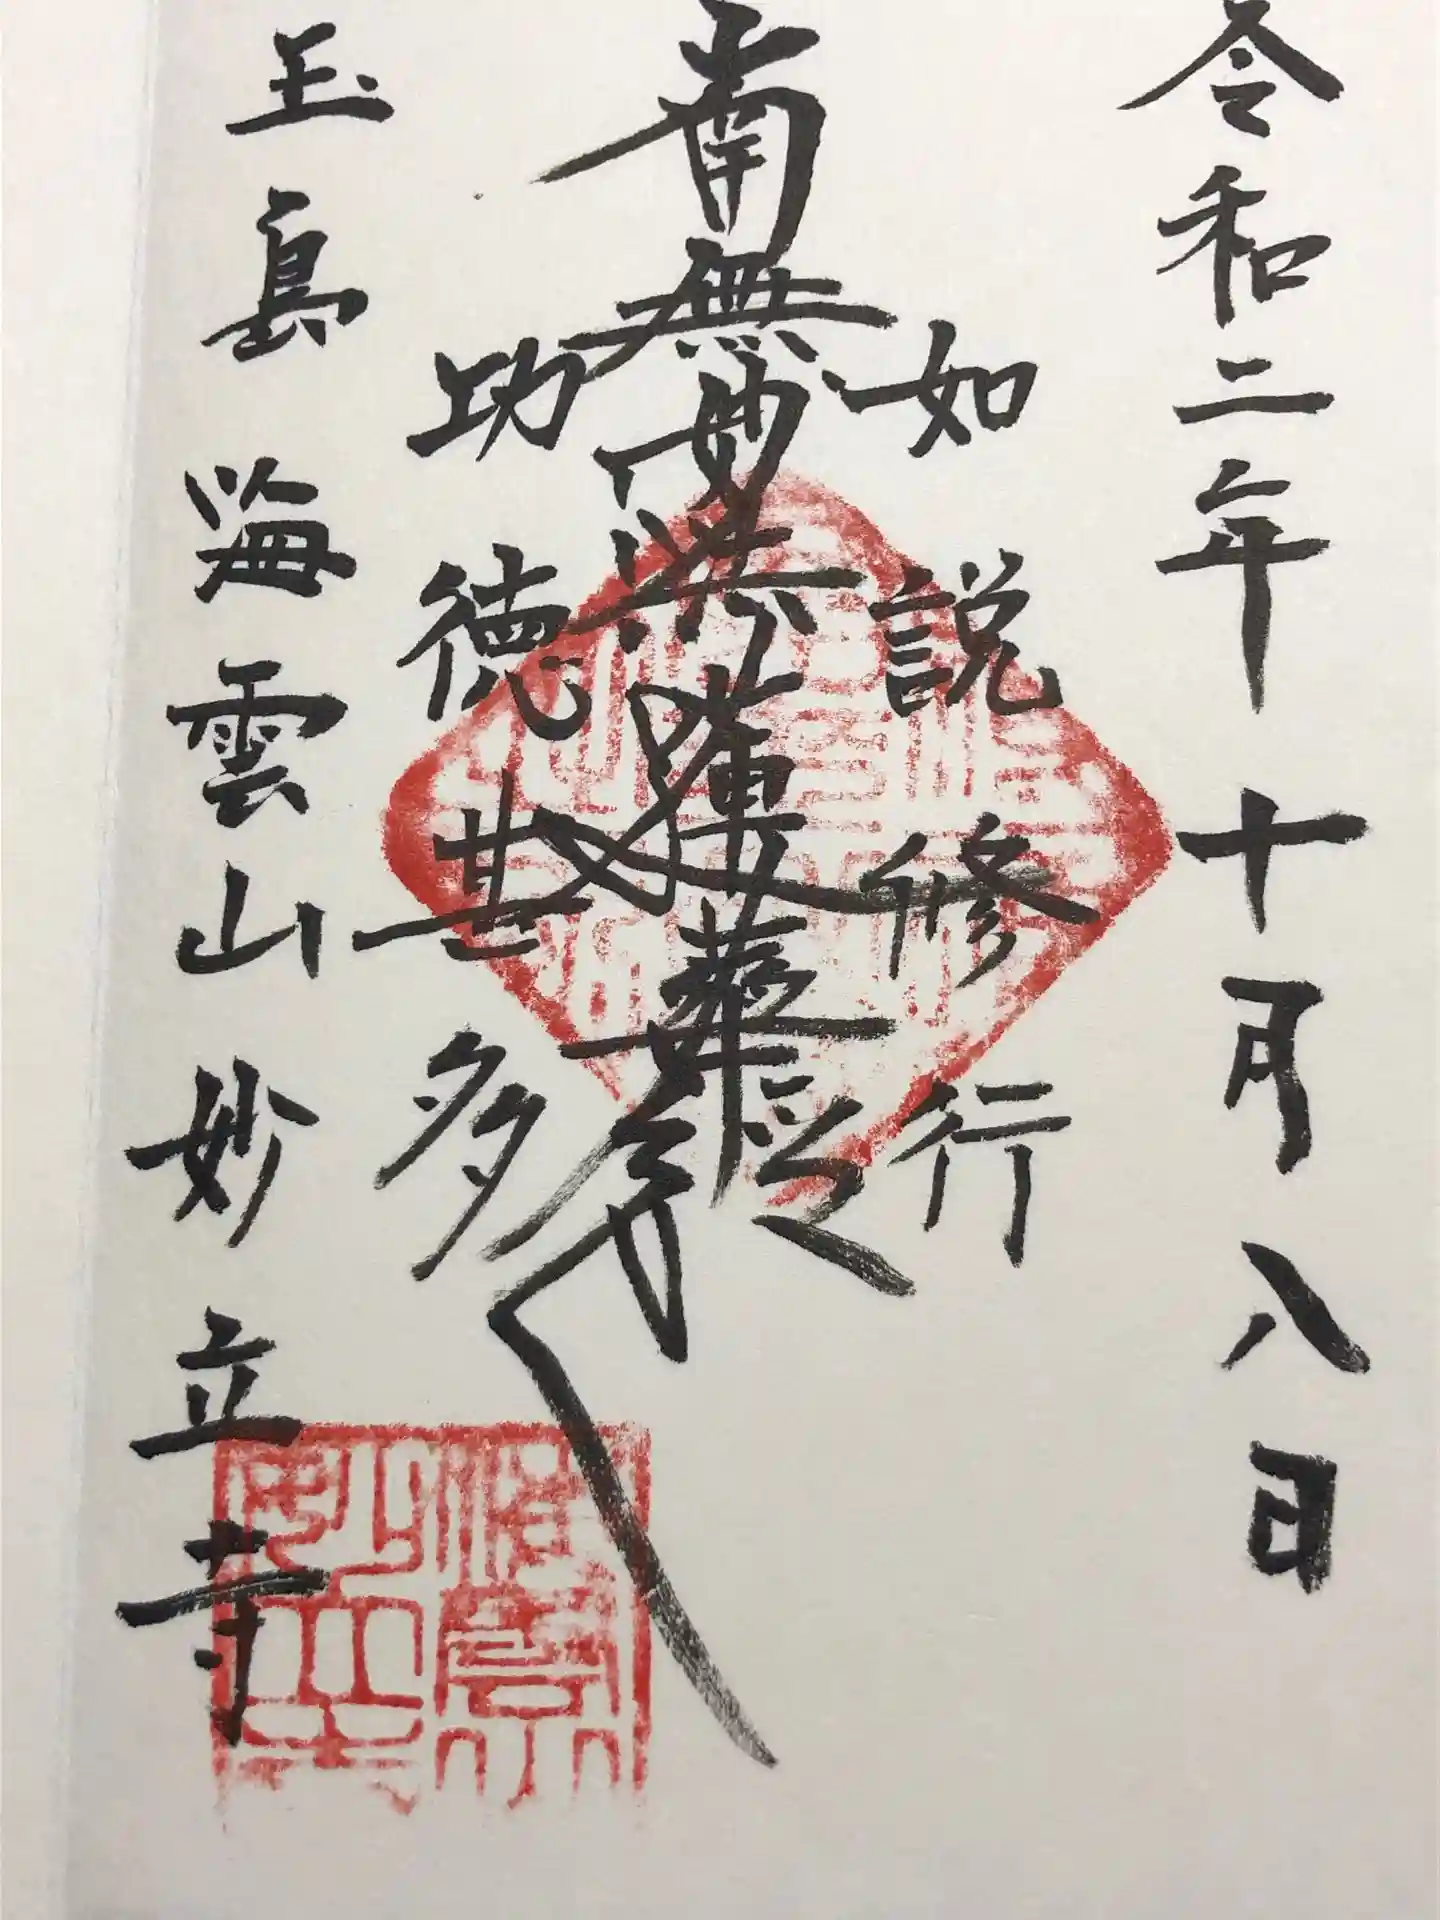 令和二年十月八日
如説修行
南無妙法蓮華経
功徳甚多
玉島 海雲山妙立寺